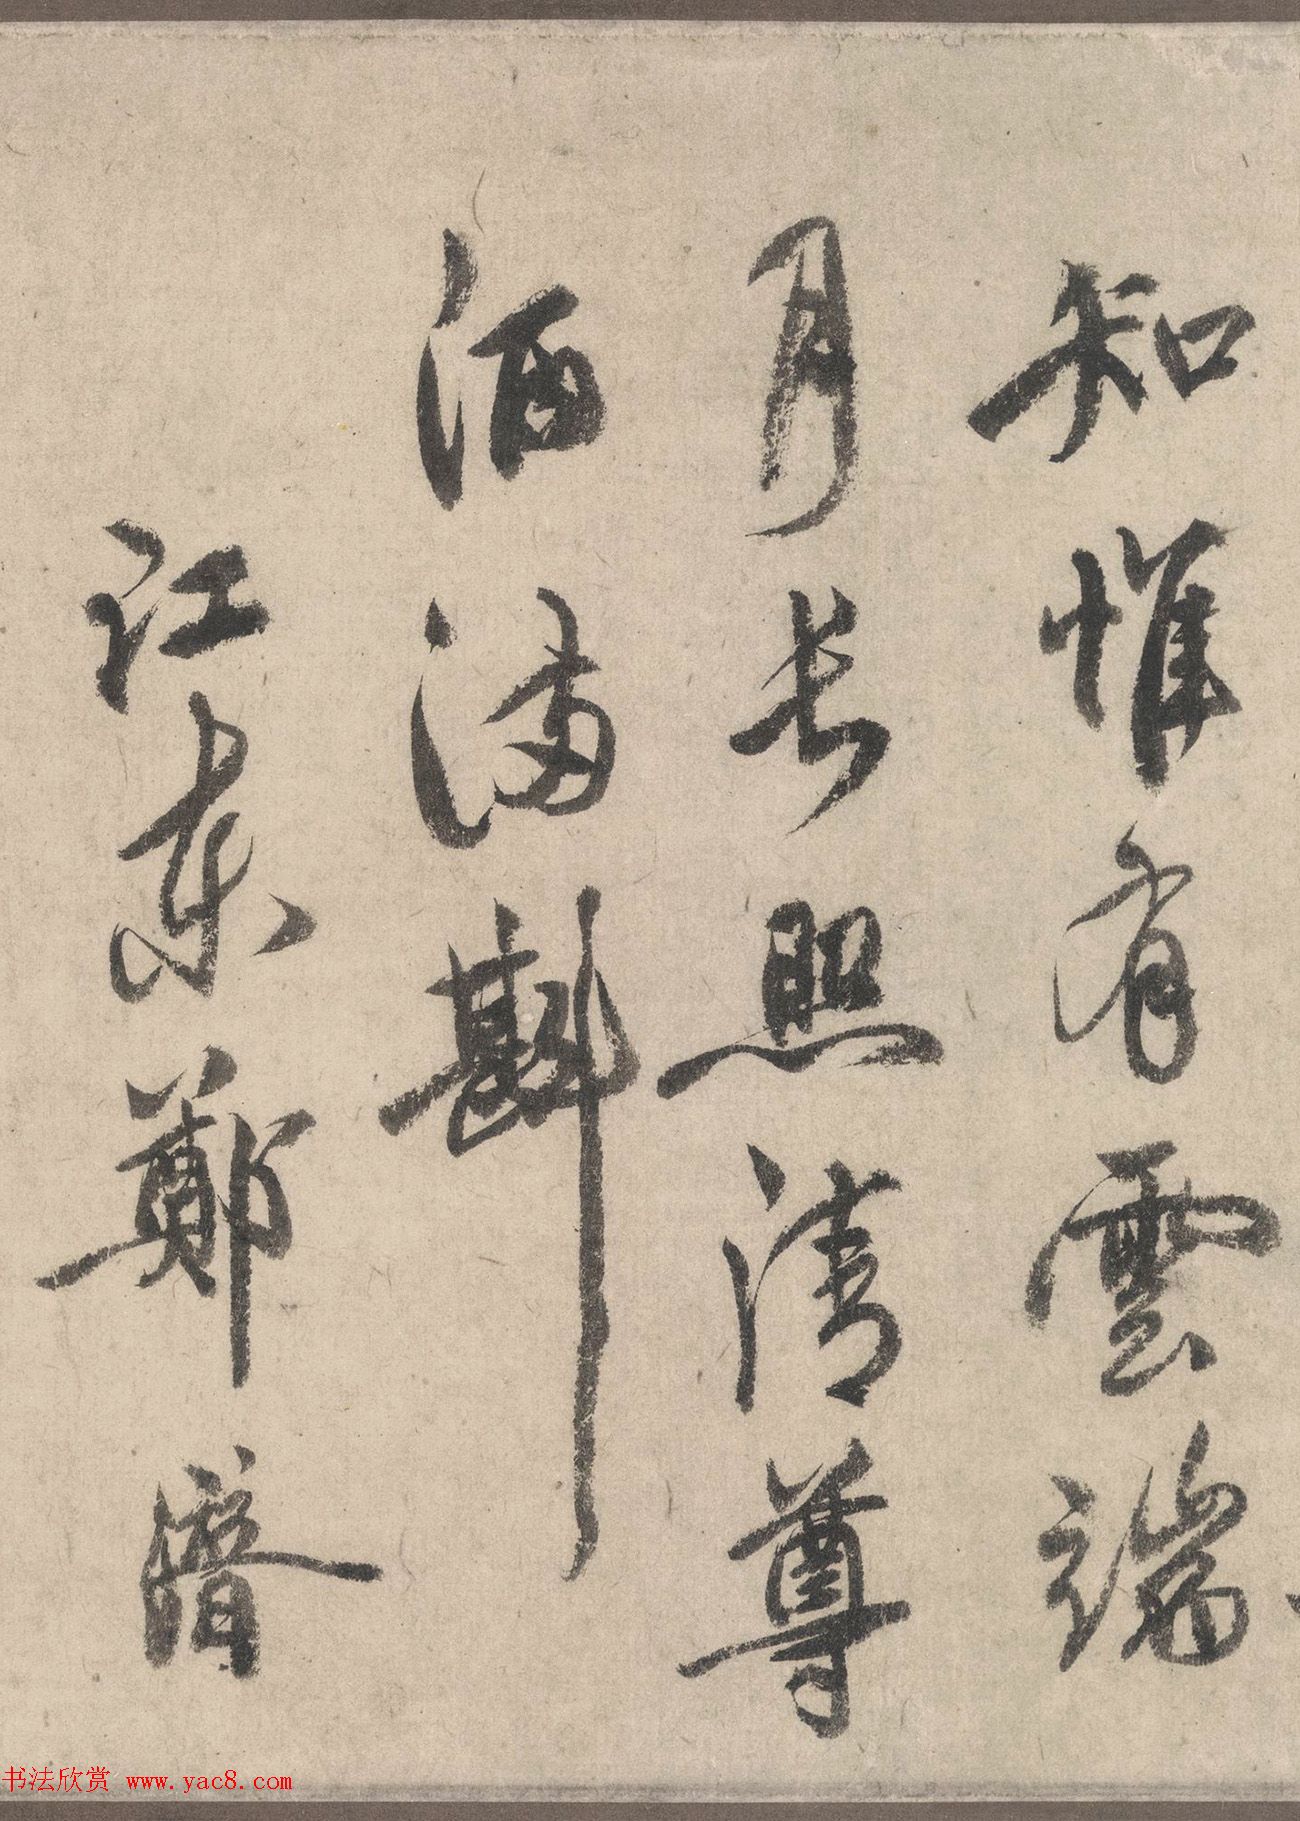 知惟有雲端
月長照清尊
酒滿斟
江東鄭濟
书法欣赏 www.yac8.com